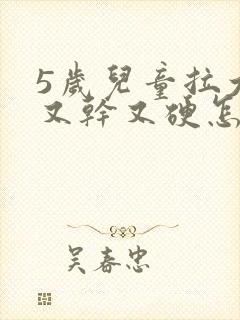 5歲兒童拉大
又幹又硬怎
吴春忠